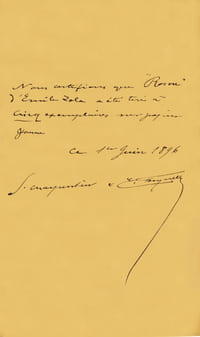 Nous certifions que "Rome"
d'Emile Zola a été tiré à
cinq exemplaires sur papier
jaune
ce 1er Juin 1896
G. Charpentier & E. Fasquelle